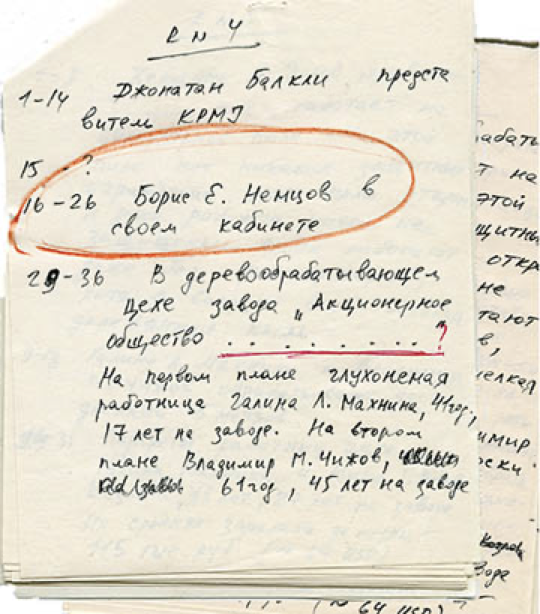 R N 4
1-14 Джонатан Балкли предста
витель КРМJ
15 - ?
16-26 Борис Е. Немцов в
своем кабинете
29-36 В деревообрабатывающем
цехе завода „Акционерное
общество . . . . . . . . " ?
На первом плане глухонемая
работница Галина Л. Махнина, 41 год,
17 лет на заводе. На втором
плане Владимир М. Чижов,
61 год, 45 лет на заводе
рабаты
т на
этой
щитны
откр
не
тают
в,
елкая
имир
рски.
Козлова
Воде